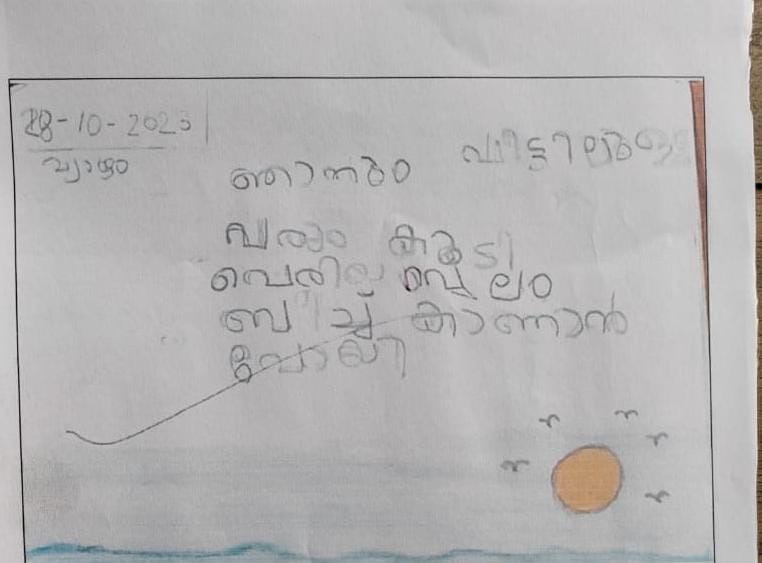 28-10-2023
വ്യാഴം
ഞാനും വീട്ടിലുള്ള
വരും കൂടി
ബീച്ച് കാണാൻ
പോയി